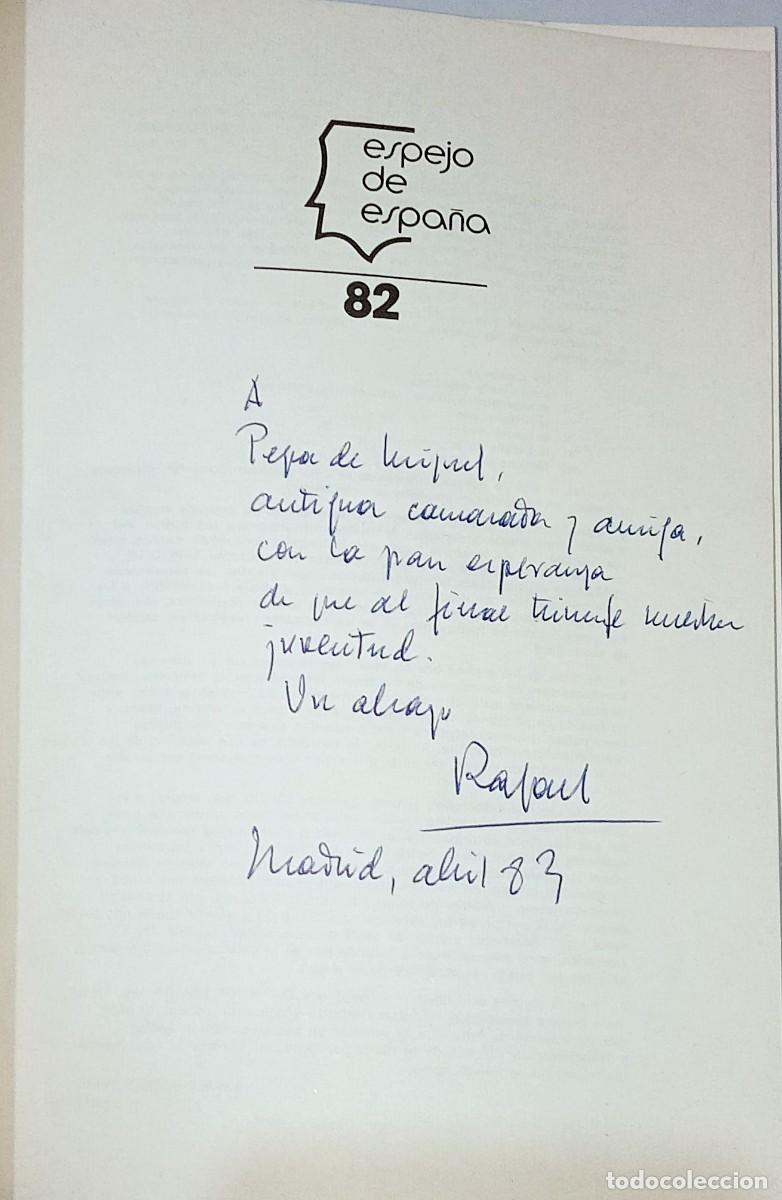 espejo
de
españa
82
A
Pepa de Miguel,
antigua camarada y amiga,
con la gran esperanza
de que al final triunfe nuestra
juventud.
Un abrazo
Rafael
Madrid, abril 83
todocoleccion